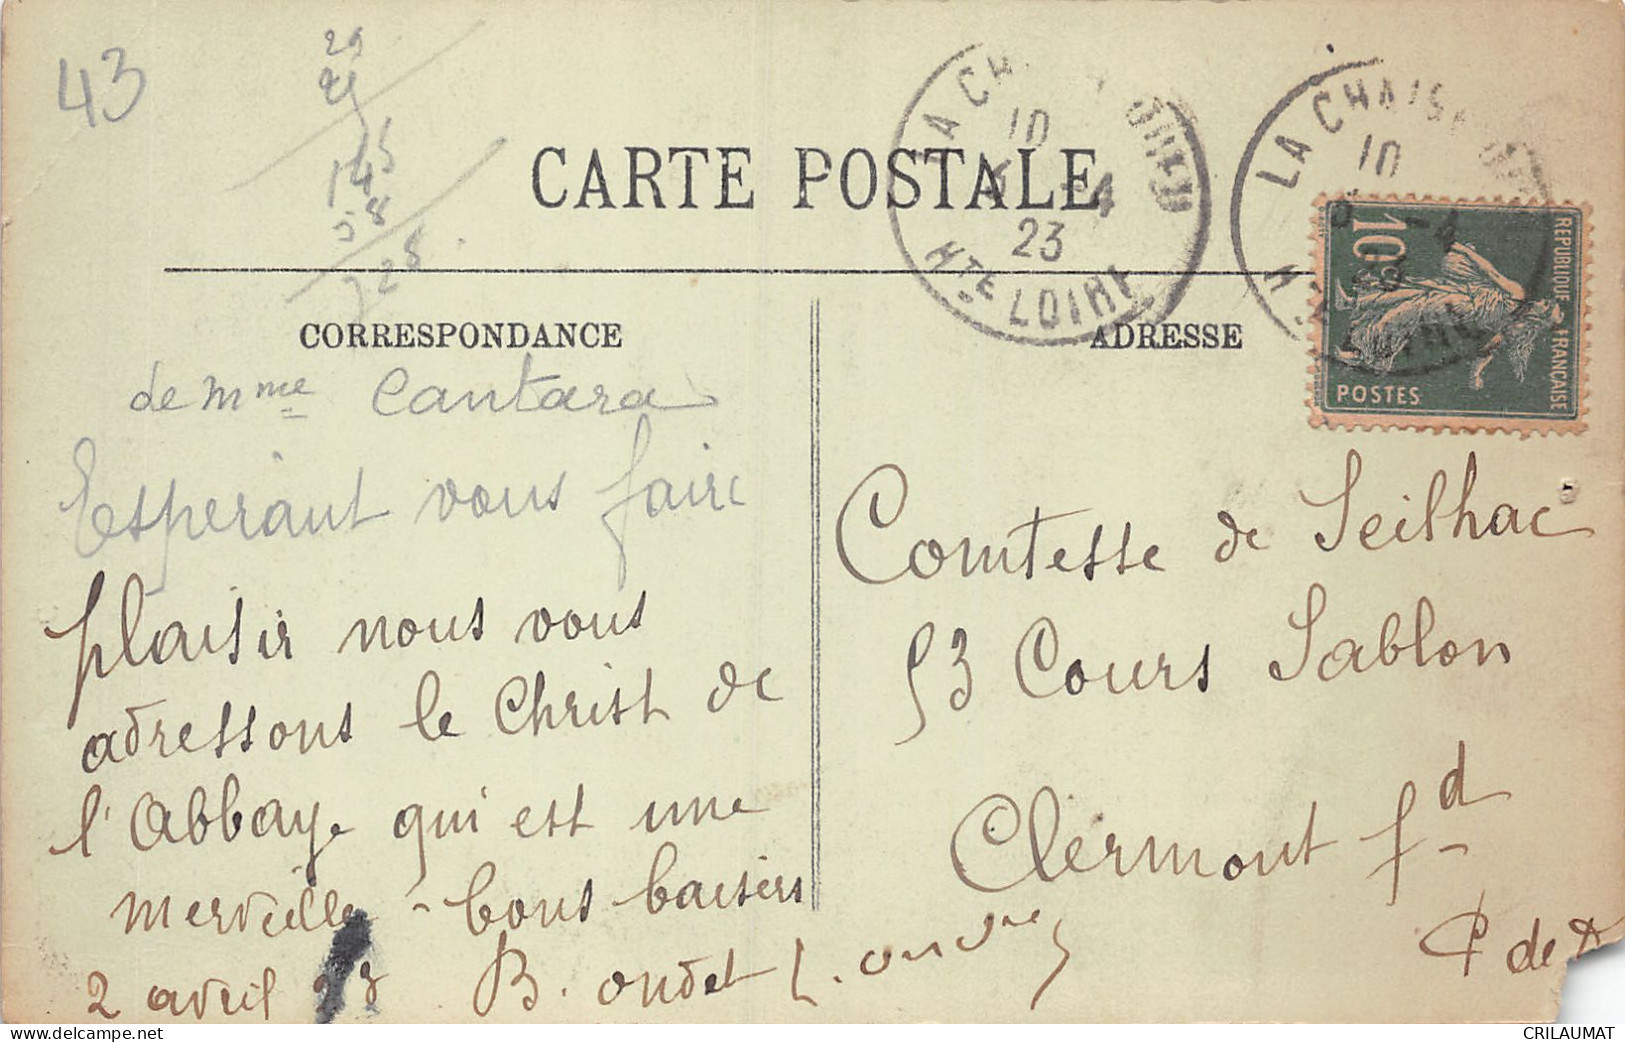 43
29
145
58
228
CARTE POSTALE
LA CHAISE DIEU
10
4
23
HTE LOIRE
LA CHAISE DIEU
10
-4
23
HTE LOIRE
REPUBLIQUE FRANÇAISE
10c
POSTES
CORRESPONDANCE
ADRESSE
de Mme Cantara
Esperant vous faire
plaisir nous vous
adressons le Christ de
l'Abbaye qui est une
merveille - bons baisers
2 avril 23 B. ondet
Comtesse de Seilhac
53 Cours Sablon
Clermont fd
P de D
www.delcampe.net
CRILAUMAT